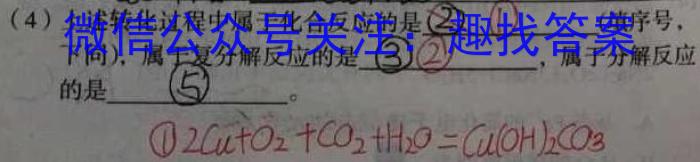 (4) 上述转化过程中属于化合反应的是 ② ① 填序号,
微信公众号关注：趣找答案
下同), 属于复分解反应的是 ③ ② , 属于分解反应
的是 ⑤ 。
①2Cu+O₂+CO₂+H₂O=Cu(OH)₂CO₃